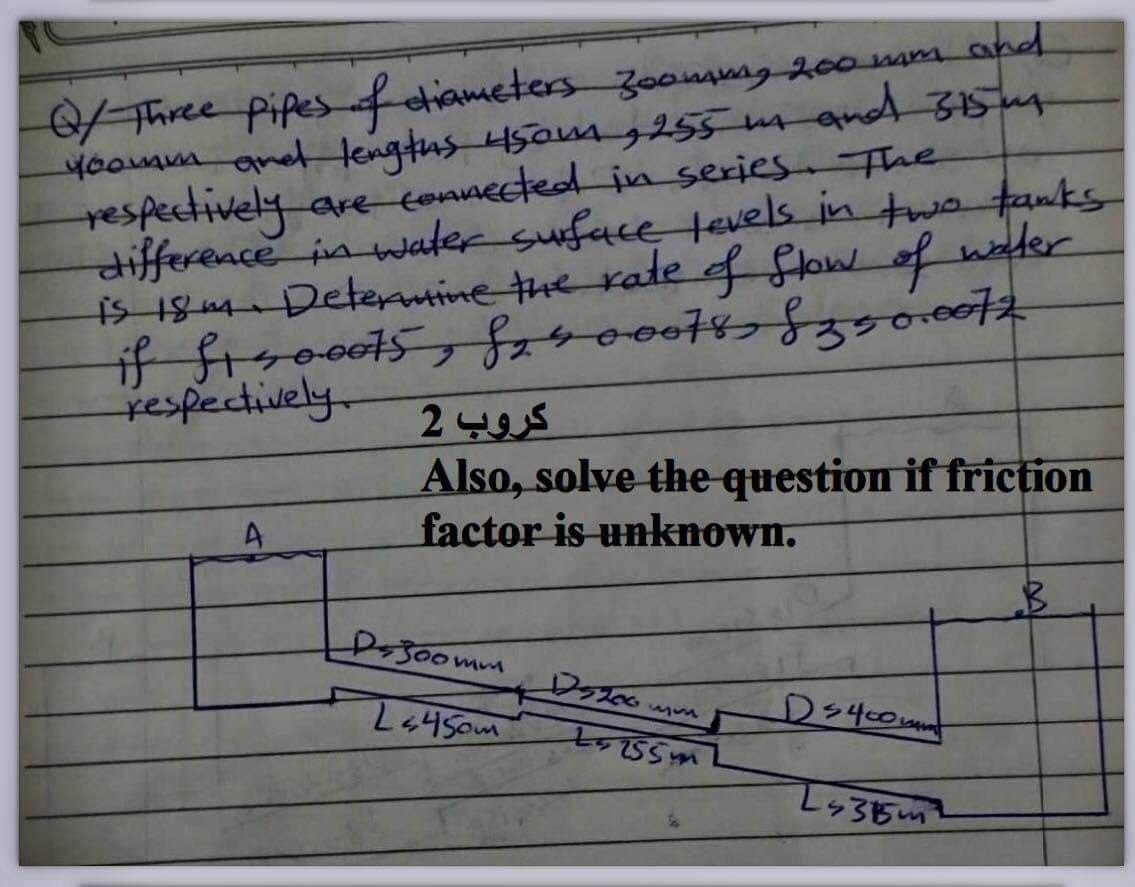 Q/ Three pipes of diameters 300mm, 200 mm and
400mm and lengths 450m, 255 m and 315 m
respectively are connected in series. The
difference in water surface levels in two tanks
is 18 m. Determine the rate of flow of water
if f1 = 0.0075, f2 = 0.0078, f3 = 0.0072
respectively.
كروب 2
Also, solve the question if friction
factor is unknown.
A
B
D=300mm
D=200 mm
D=400mm
L=450m
L=255m
L=315m